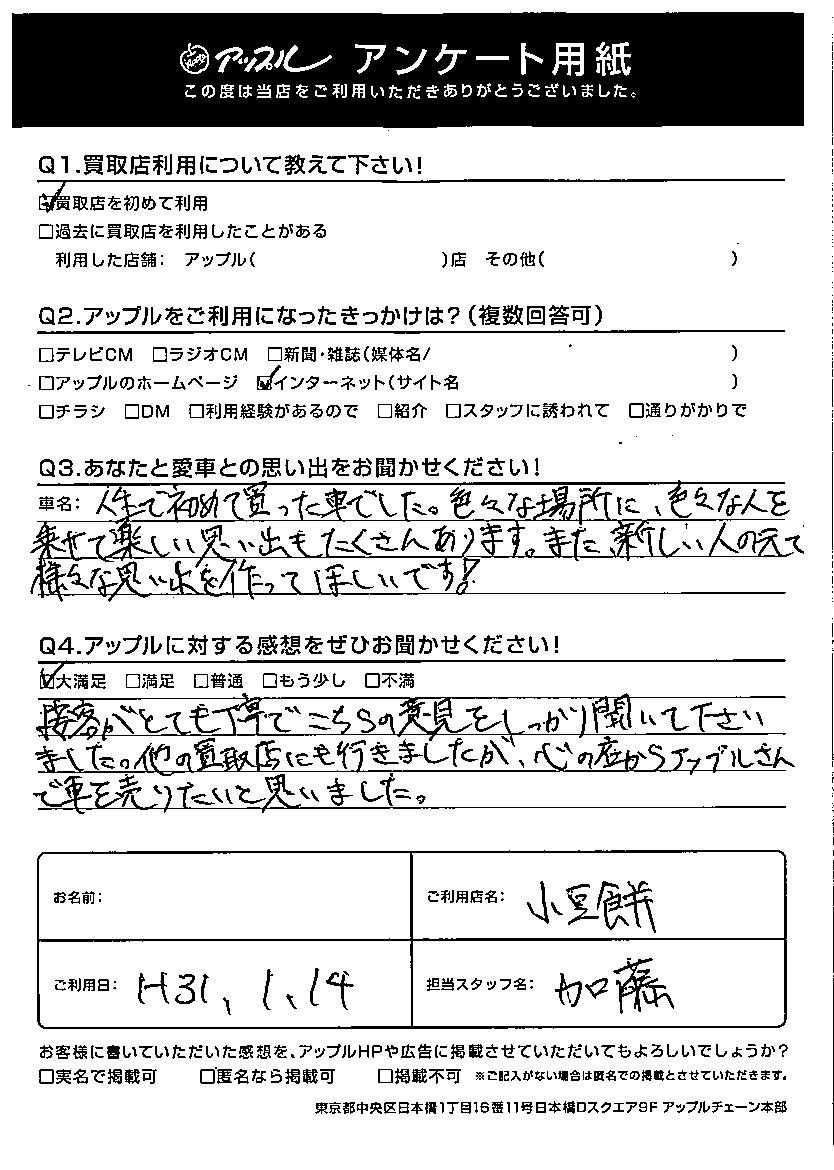 アップル アンケート用紙
この度は当店をご利用いただきありがとうございました。
Q1.買取店利用について教えて下さい!
☑買取店を初めて利用
□過去に買取店を利用したことがある
利用した店舗: アップル( )店 その他( )
Q2.アップルをご利用になったきっかけは?(複数回答可)
□テレビCM □ラジオCM □新聞・雑誌(媒体名/ )
□アップルのホームページ ☑インターネット(サイト名 )
□チラシ □DM □利用経験があるので □紹介 □スタッフに誘われて □通りがかりで
Q3.あなたと愛車との思い出をお聞かせください!
車名: 人生で初めて買った車でした。色々な場所に、色々な人を
乗せて楽しい思い出もたくさんあります。また、新しい人の元で
様々な思い出を作ってほしいです!
Q4.アップルに対する感想をぜひお聞かせください!
☑大満足 □満足 □普通 □もう少し □不満
接客がとても丁寧でこちらの意見をしっかり聞いて下さい
ました。他の買取店にも行きましたが、心の底からアップルさん
で車を売りたいと思いました。
お名前:
ご利用店名: 小豆餅
ご利用日: H31、1、14
担当スタッフ名: 加藤
お客様に書いていただいた感想を、アップルHPや広告に掲載させていただいてもよろしいでしょうか?
□実名で掲載可 □匿名なら掲載可 □掲載不可 ※ご記入がない場合は匿名での掲載とさせていただきます。
東京都中央区日本橋1丁目16番11号日本橋Dスクエア9F アップルチェーン本部